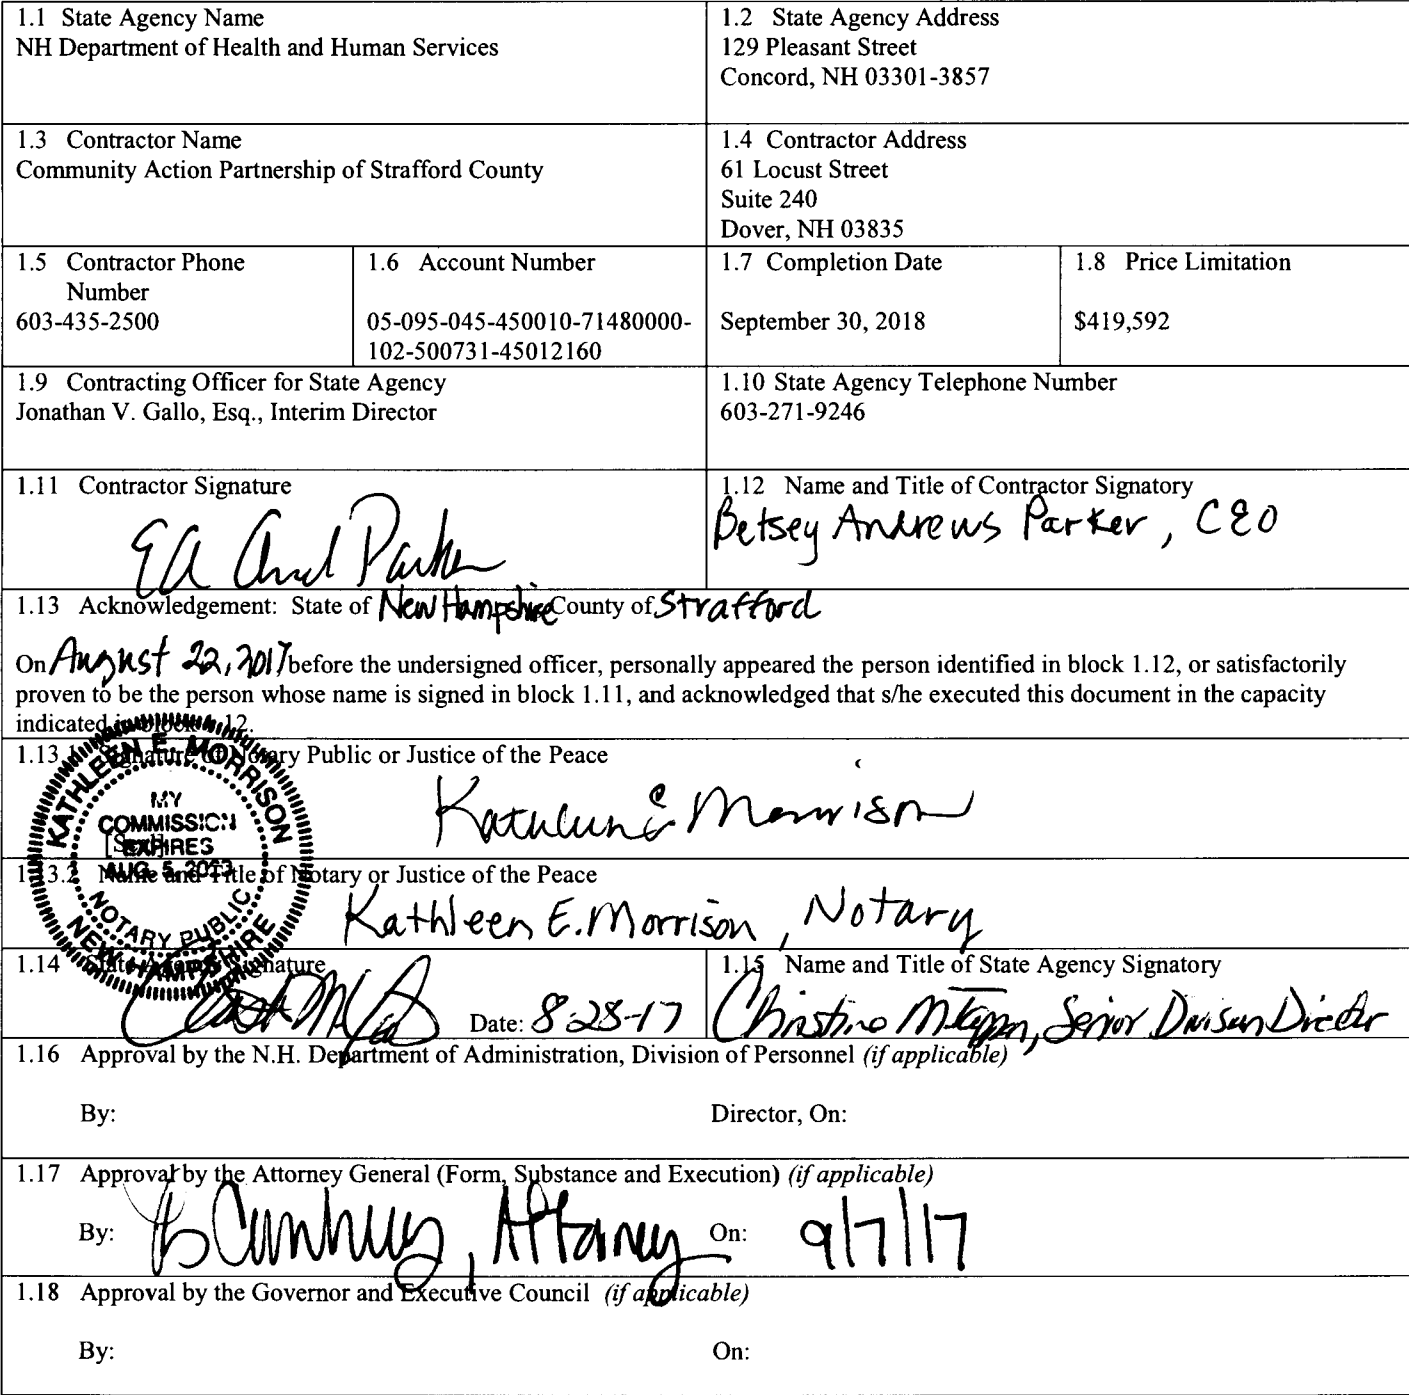 1.1 State Agency Name
NH Department of Health and Human Services
1.2 State Agency Address
129 Pleasant Street
Concord, NH 03301-3857
1.3 Contractor Name
Community Action Partnership of Strafford County
1.4 Contractor Address
61 Locust Street
Suite 240
Dover, NH 03835
1.5 Contractor Phone
Number
603-435-2500
1.6 Account Number
05-095-045-450010-71480000-
102-500731-45012160
1.7 Completion Date
September 30, 2018
1.8 Price Limitation
$419,592
1.9 Contracting Officer for State Agency
Jonathan V. Gallo, Esq., Interim Director
1.10 State Agency Telephone Number
603-271-9246
1.11 Contractor Signature
Parker
1.12 Name and Title of Contractor Signatory
Betsey Andrews Parker, CEO
1.13 Acknowledgement: State of New Hampshire County of Strafford
On August 22, 2017 before the undersigned officer, personally appeared the person identified in block 1.12, or satisfactorily
proven to be the person whose name is signed in block 1.11, and acknowledged that s/he executed this document in the capacity
indicated in block 1.12.
1.13.1 Signature of Notary Public or Justice of the Peace
Kathleen E Morrison
KATHLEEN E. MORRISON
MY
COMMISSION
[Seal]
EXPIRES
AUG. 5,
NOTARY PUBLIC
NEW HAMPSHIRE
1.13.2 Name and Title of Notary or Justice of the Peace
Kathleen E. Morrison, Notary
1.14 State Agency Signature
Date: 8-28-17
1.15 Name and Title of State Agency Signatory
Christine Senior Division Director
1.16 Approval by the N.H. Department of Administration, Division of Personnel (if applicable)
By:
Director, On:
1.17 Approval by the Attorney General (Form, Substance and Execution) (if applicable)
By: Attorney On: 9/7/17
1.18 Approval by the Governor and Executive Council (if applicable)
By:
On: